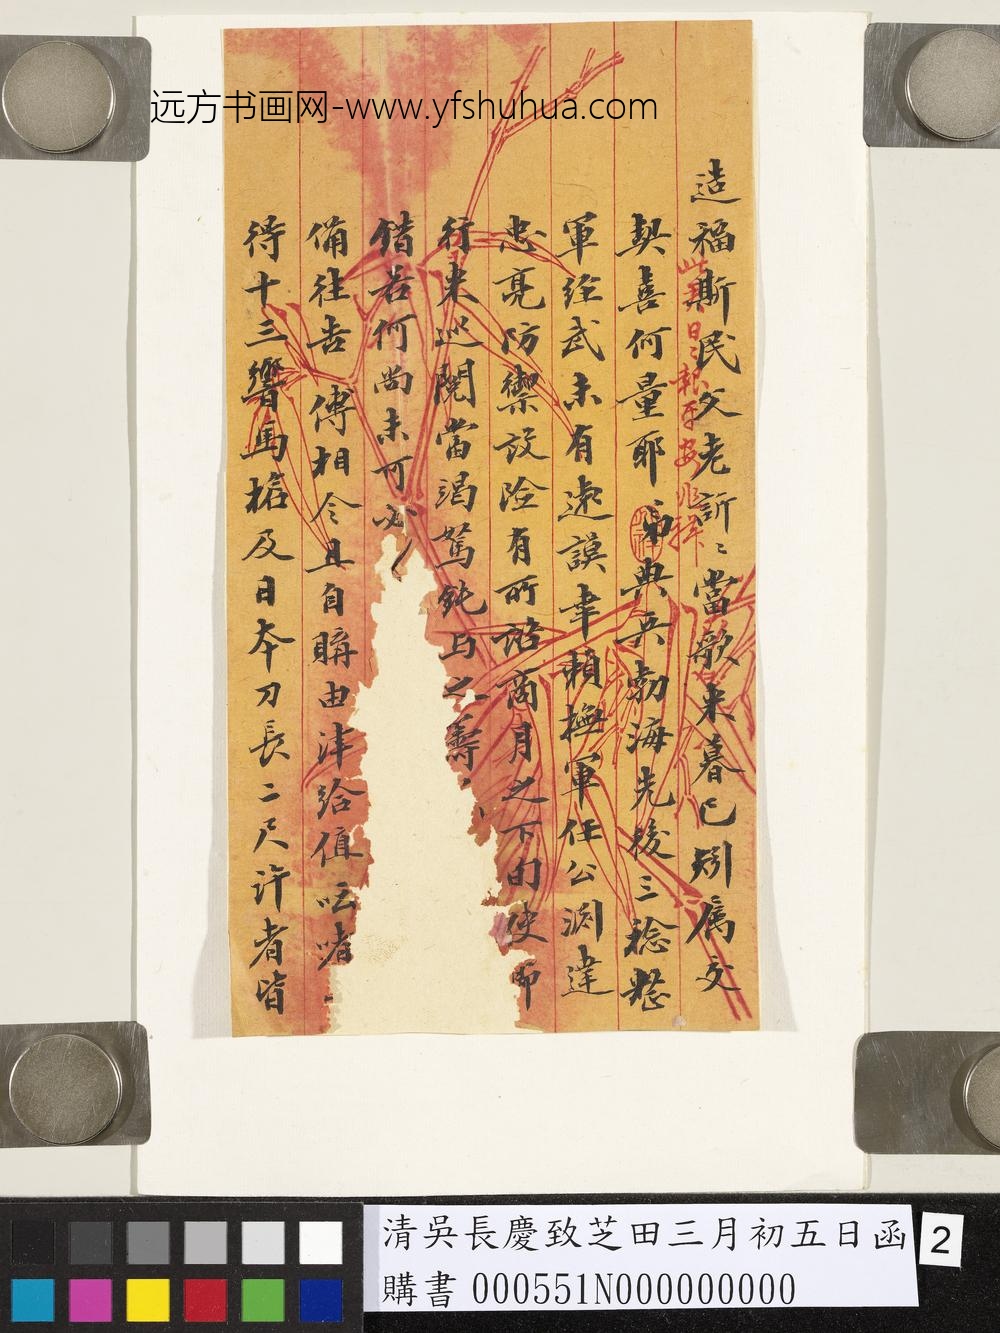 远方书画网-www.yfshuhua.com
造福斯民父老訢〻當歌來暮已矧屬交
契喜何量耶弟典兵勃海先後三稔整
軍經武未有遠謨幸賴撫軍任公淵達
忠亮防禦設險有所諮商月之下旬使節
行來巡閱當竭駑鈍與之籌
錯若何尚未可必
備往告傅相令且自購由津給值
得十三響馬槍及日本刀長二尺許者皆
日〻報平安
清吳長慶致芝田三月初五日函
2
購書 000551N000000000